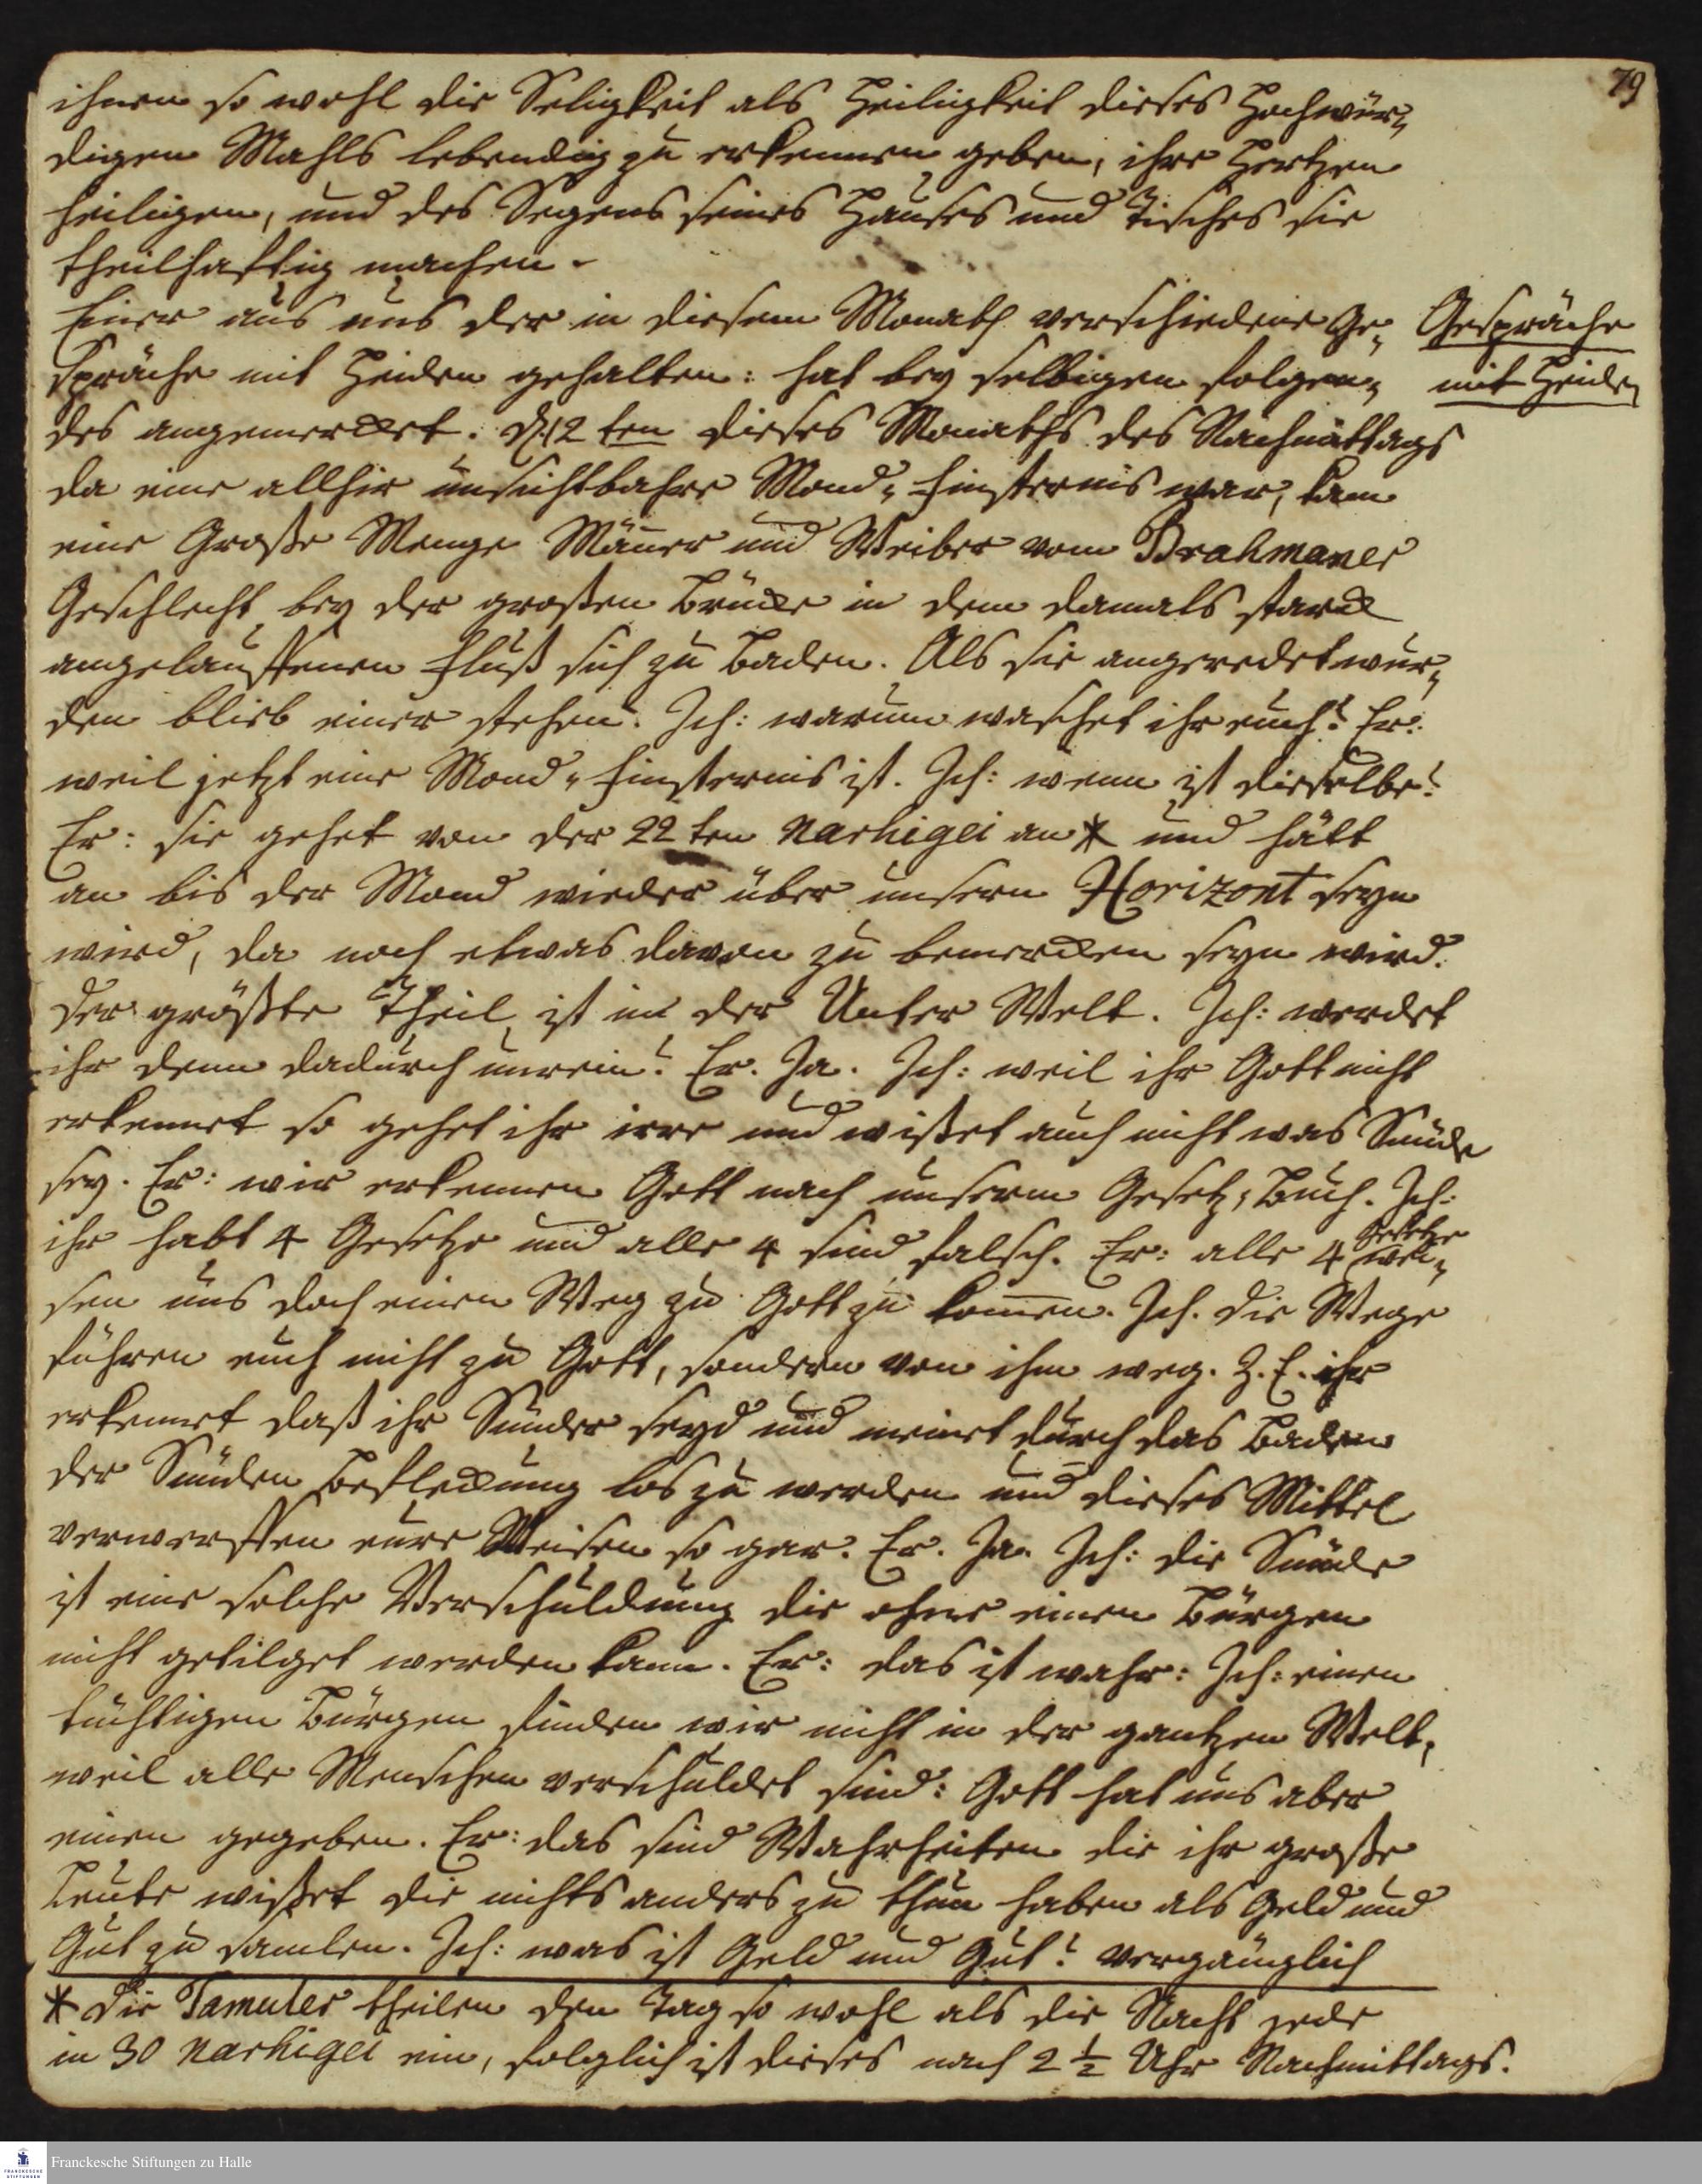 79
ihnen so wohl die Seligkeit als Heiligkeit dieses Hochwür-
digen Mahls lebendig zu erkennen geben, ihre Hertzen
heiligen, und des Segens seines Hauses und Tisches sie
theilhafftig machen.
Einer aus uns der in diesem Monath verschiedene Ge-
spräche mit Heiden gehalten: hat bey selbigen folgen-
des angemercket. d. 12ten dieses Monaths des Nachmittags
da eine allhir unsichtbahre Mond-Finsternis war, kam
eine Große Menge Mäner und Weiber vom Brahmaner
Geschlecht bey der großen Brücke in dem damals starck
angelauffenen Fluß sich zu Baden. Als sie angeredet wur-
den blieb einer stehen. Ich: warum waschet ihr euch? Er:
weil jetzt eine Mond-Finsternis ist. Ich: wenn ist dieselbe?
Er: sie gehet von der 22ten Narhigei an * und hält
an bis der Mond wieder über unsern Horizont seyn
wird, da noch etwas davon zu bemercken seyn wird.
der größte Theil ist in der Unter Welt. Ich: werdet
ihr denn dadurch unrein? Er. Ja. Ich: weil ihr Gott nicht
erkennet so gehet ihr irre und wißet auch nicht was Sünde
sey. Er: wir erkennen Gott nach unserm Gesetz-Buch. Ich:
ihr habt 4 Gesetze und alle 4 sind falsch. Er: alle 4 Gesetze wei-
sen uns doch einen Weg zu Gott zu komen. Ich. die Wege
führen euch nicht zu Gott, sondern von ihm weg. Z. E. ihr
erkennet daß ihr Sünder seyd und meinet durch das Baden
der Sünden Befleckung los zu werden und dieses Mittel
verwerffen eure Weisen so gar. Er. Ja. Ich: die Sünde
ist eine solche Verschuldung die ohne einen Bürgen
nicht getilget werden kann. Er: das ist wahr: Ich: einen
tüchtigen Bürgen finden wir nicht in der gantzen Welt,
weil alle Menschen verschuldet sind: Gott hat uns aber
einen gegeben. Er: das sind Wahrheiten die ihr große
Leute wißet die nichts anders zu thun haben als Geld und
Gut zu samlen. Ich: was ist Geld und Gut? vergänglich
* die Tamuler theilen den Tag so wohl als die Nacht jede
in 30 Narhigei ein, folglich ist dieses nach 2 1/2 Uhr Nachmittags.
Gespräche
mit Heiden
Franckesche Stiftungen zu Halle